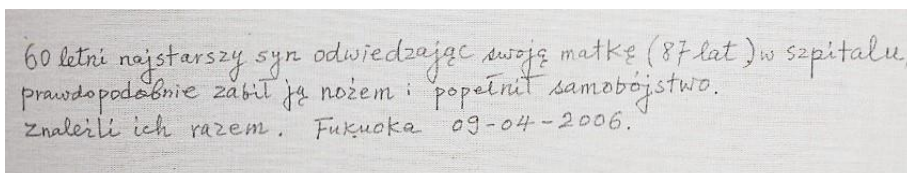 60 letni najstarszy syn odwiedzając swoją matkę (87 lat) w szpitalu
prawdopodobnie zabił ją nożem i popełnił samobójstwo.
Znaleźli ich razem. Fukuoka 09-04-2006.